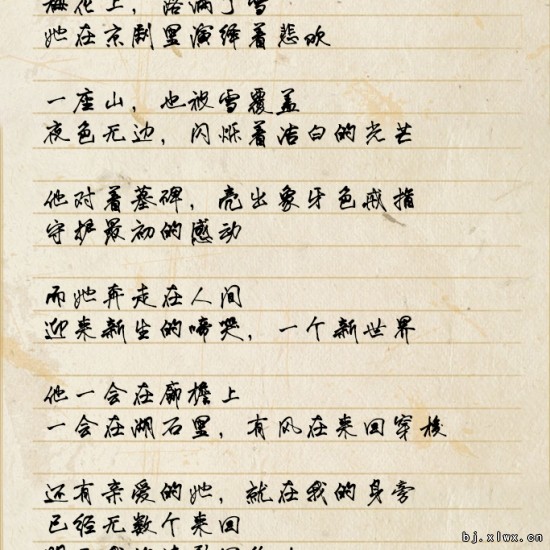 梅花上，落满了雪
她在京剧里演绎着悲欢
一座山，也被雪覆盖
夜色无边，闪烁着洁白的光芒
他对着墓碑，亮出象牙色戒指
守护最初的感动
而她奔走在人间
迎来新生的啼哭，一个新世界
他一会在廊檐上
一会在湖石里，有风在来回穿梭
还有亲爱的她，就在我的身旁
已经无数个来回
bj.xlwx.cn